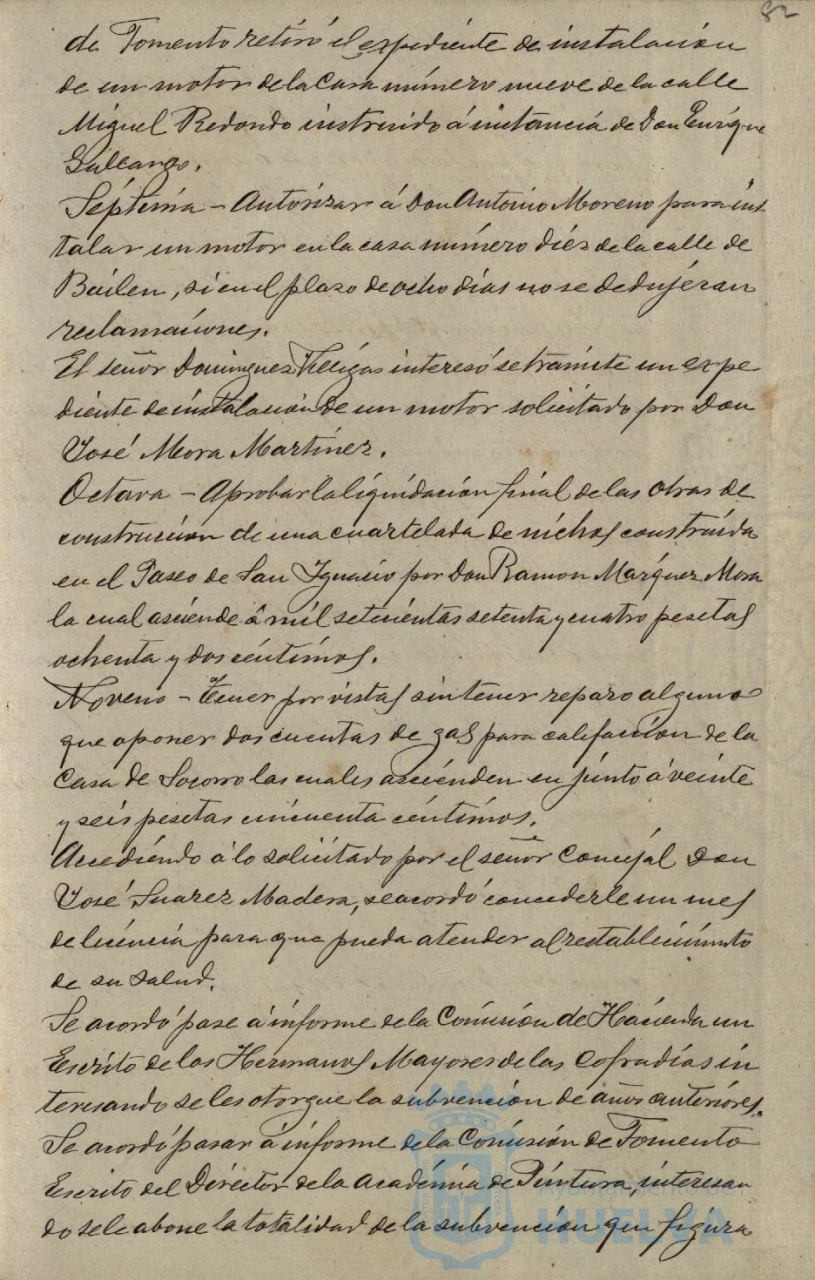 82
de Fomento retiró el expediente de instalación
de un motor de la Casa número nueve de la calle
Miguel Redondo instruido á instancia de Don Enrique
Séptima - Autorizar á Don Antonio Moreno para ins
talar un motor en la casa número diés de la calle de
Bailen, si en el plaso de ocho días no se dedujeran
reclamaciones.
El señor Dominguez interesó se trámite un expe-
diente de instalación de un motor solicitado por Don
José Mora Martínez.
Octava - Aprobar la liquidación final de las obras de
construcion de una cuartelada de nichos construída
en el Paseo de San Ignacio por Don Ramon Marquez Mora
la cual asciende á mil setecientas setenta y cuatro pesetas
ochenta y dos céntimos.
Noveno - Tener por vistas sin tener reparo alguno
que oponer dos cuentas de gas para calefacción de la
Casa de Socorro las cuales asciénden en junto á veinte
y seis pesetas cincuenta céntimos.
Accediéndo á lo solicitado por el señor Concejál Don
José Suarez Madera, se acordó concederle un mes
de licéncia para que pueda atender al restablecimiento
de su salud.
Se acordó pase á informe de la Comisión de Hacienda un
Escrito de los Hermanos Mayores de las Cofradías in
teresando se les otorgue la subvención de años anteriores.
Se acordó pasar á informe de la Comisión de Fomento
Escrito del Diréctor de la Académia de Pintura, interesan
do se le abone la totalidad de la subvención que figura
HUELVA